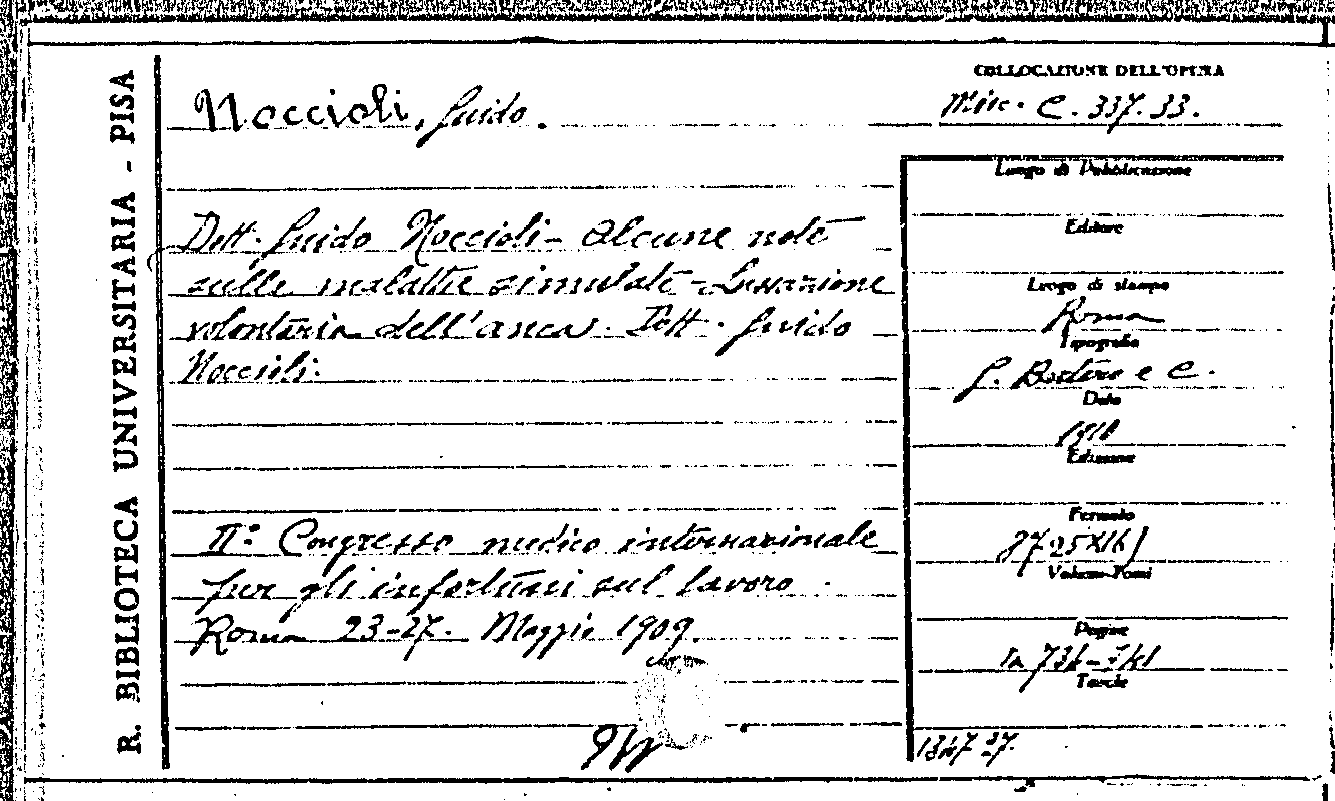 R. BIBLIOTECA UNIVERSITARIA - PISA
Noccioli, Guido.
Dott. Guido Noccioli - Alcune note
sulle malattie simulate - Lussazione
volontaria dell'anca. Dott. Guido
Noccioli.
IIº Congresso medico internazionale
per gli infortuni sul lavoro.
Roma 23-27. Maggio 1909.
COLLOCAZIONE DELL'OPERA
Misc. C. 337. 33.
Luogo di Pubblicazione
Editore
Luogo di stampa
Roma
Tipografia
G. Bertero e C.
Data
1910
Edizione
Formato
Volumi-Tomi
Pagine
Tavole